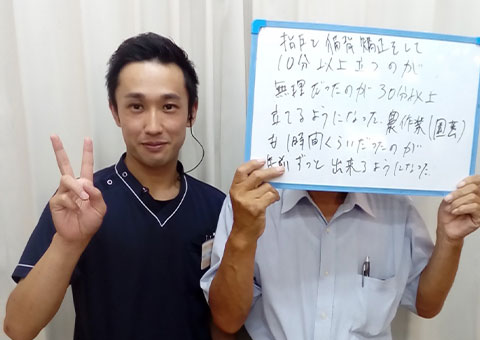 指圧と猫背矯正をして
10分以上立つのが
無理だったのが30分以上
立てるようになった。農作業(園芸)
も1時間くらいだったのが
ずっと出来るようになった